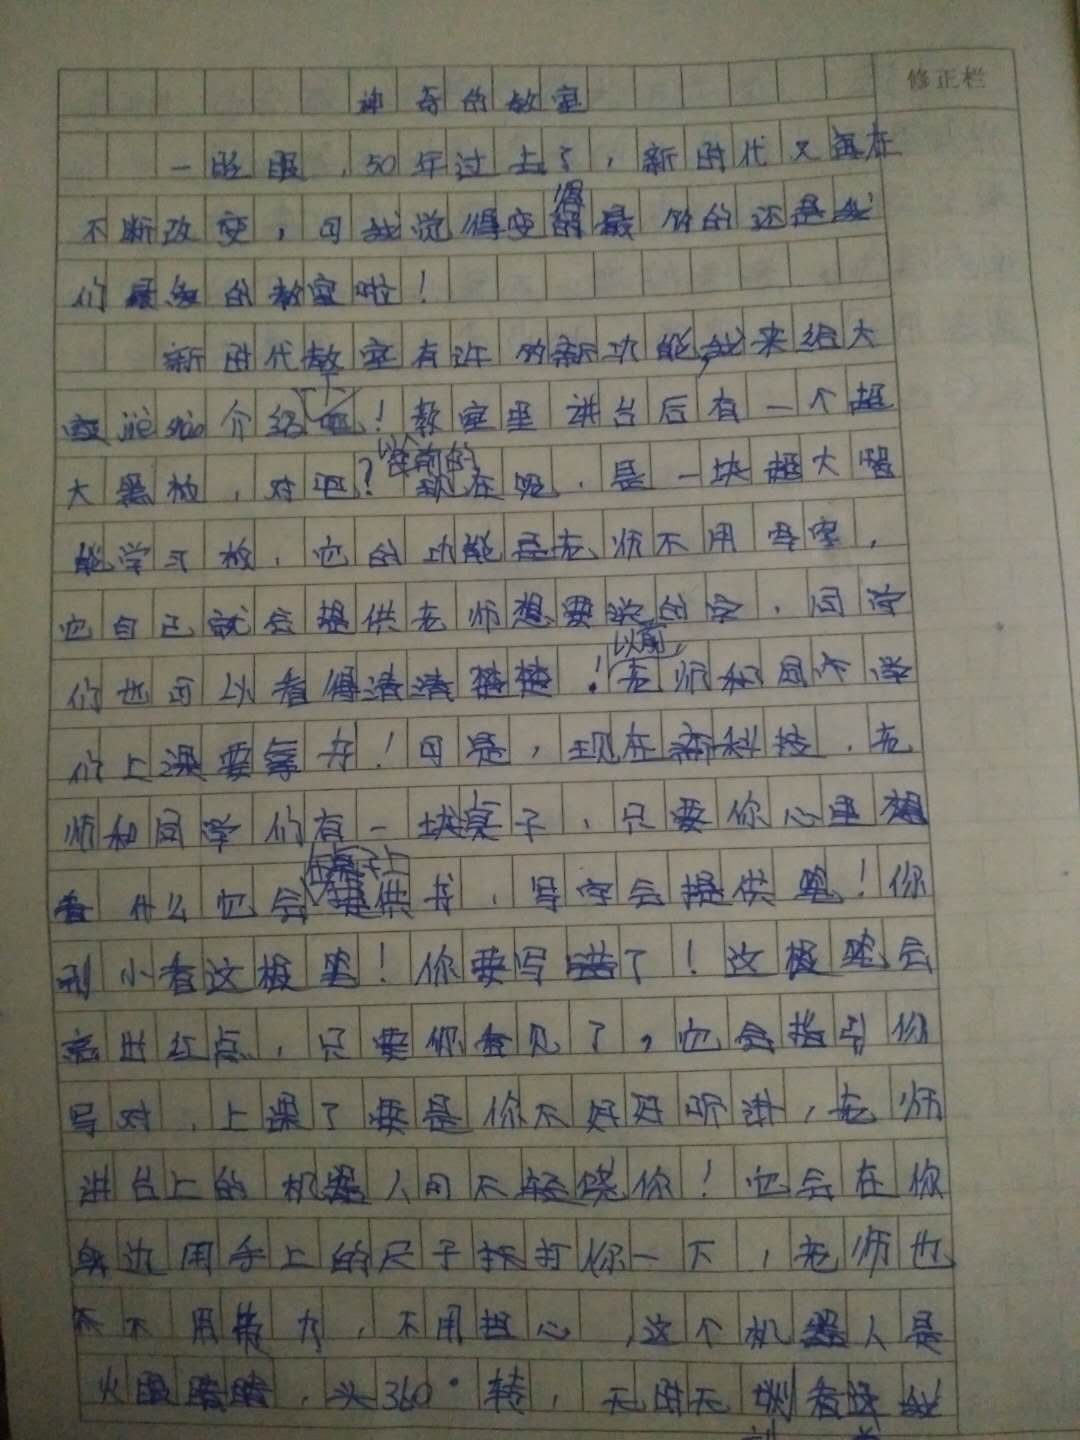 修正栏
神奇的教室
一眨眼，50年过去了，新时代又再在
不断改变，可我觉得变得最的还是我
们的教室啦！
新时代教室有许的新功能，我来给大
家说说介绍吧！教室里讲台后有一个超
大黑板，对吧？以前的现在呢，是一块超大智
能学习板，它的功能是老师不用写字，
它自己就会提供老师想要说的字，同学
们也可以看得清清楚楚！以前，老师和同学
们上课要拿书！可是，现在新科技，老
师和同学们有一块桌子，只要你心里想
看什么它会在桌子上提供书，写字会提供笔！你
别小看这板笔！你要写错了！这板笔会
亮出红点，只要你看见了，它会指引你
写对，上课了要是你不好好听讲，老师
讲台上的机器人可不轻饶你！它会在你
身边用手上的尺子打你一下，老师也
不用费力，不用担心，这个机器人是
火眼睛睛，头360°转，无时无刻看着我